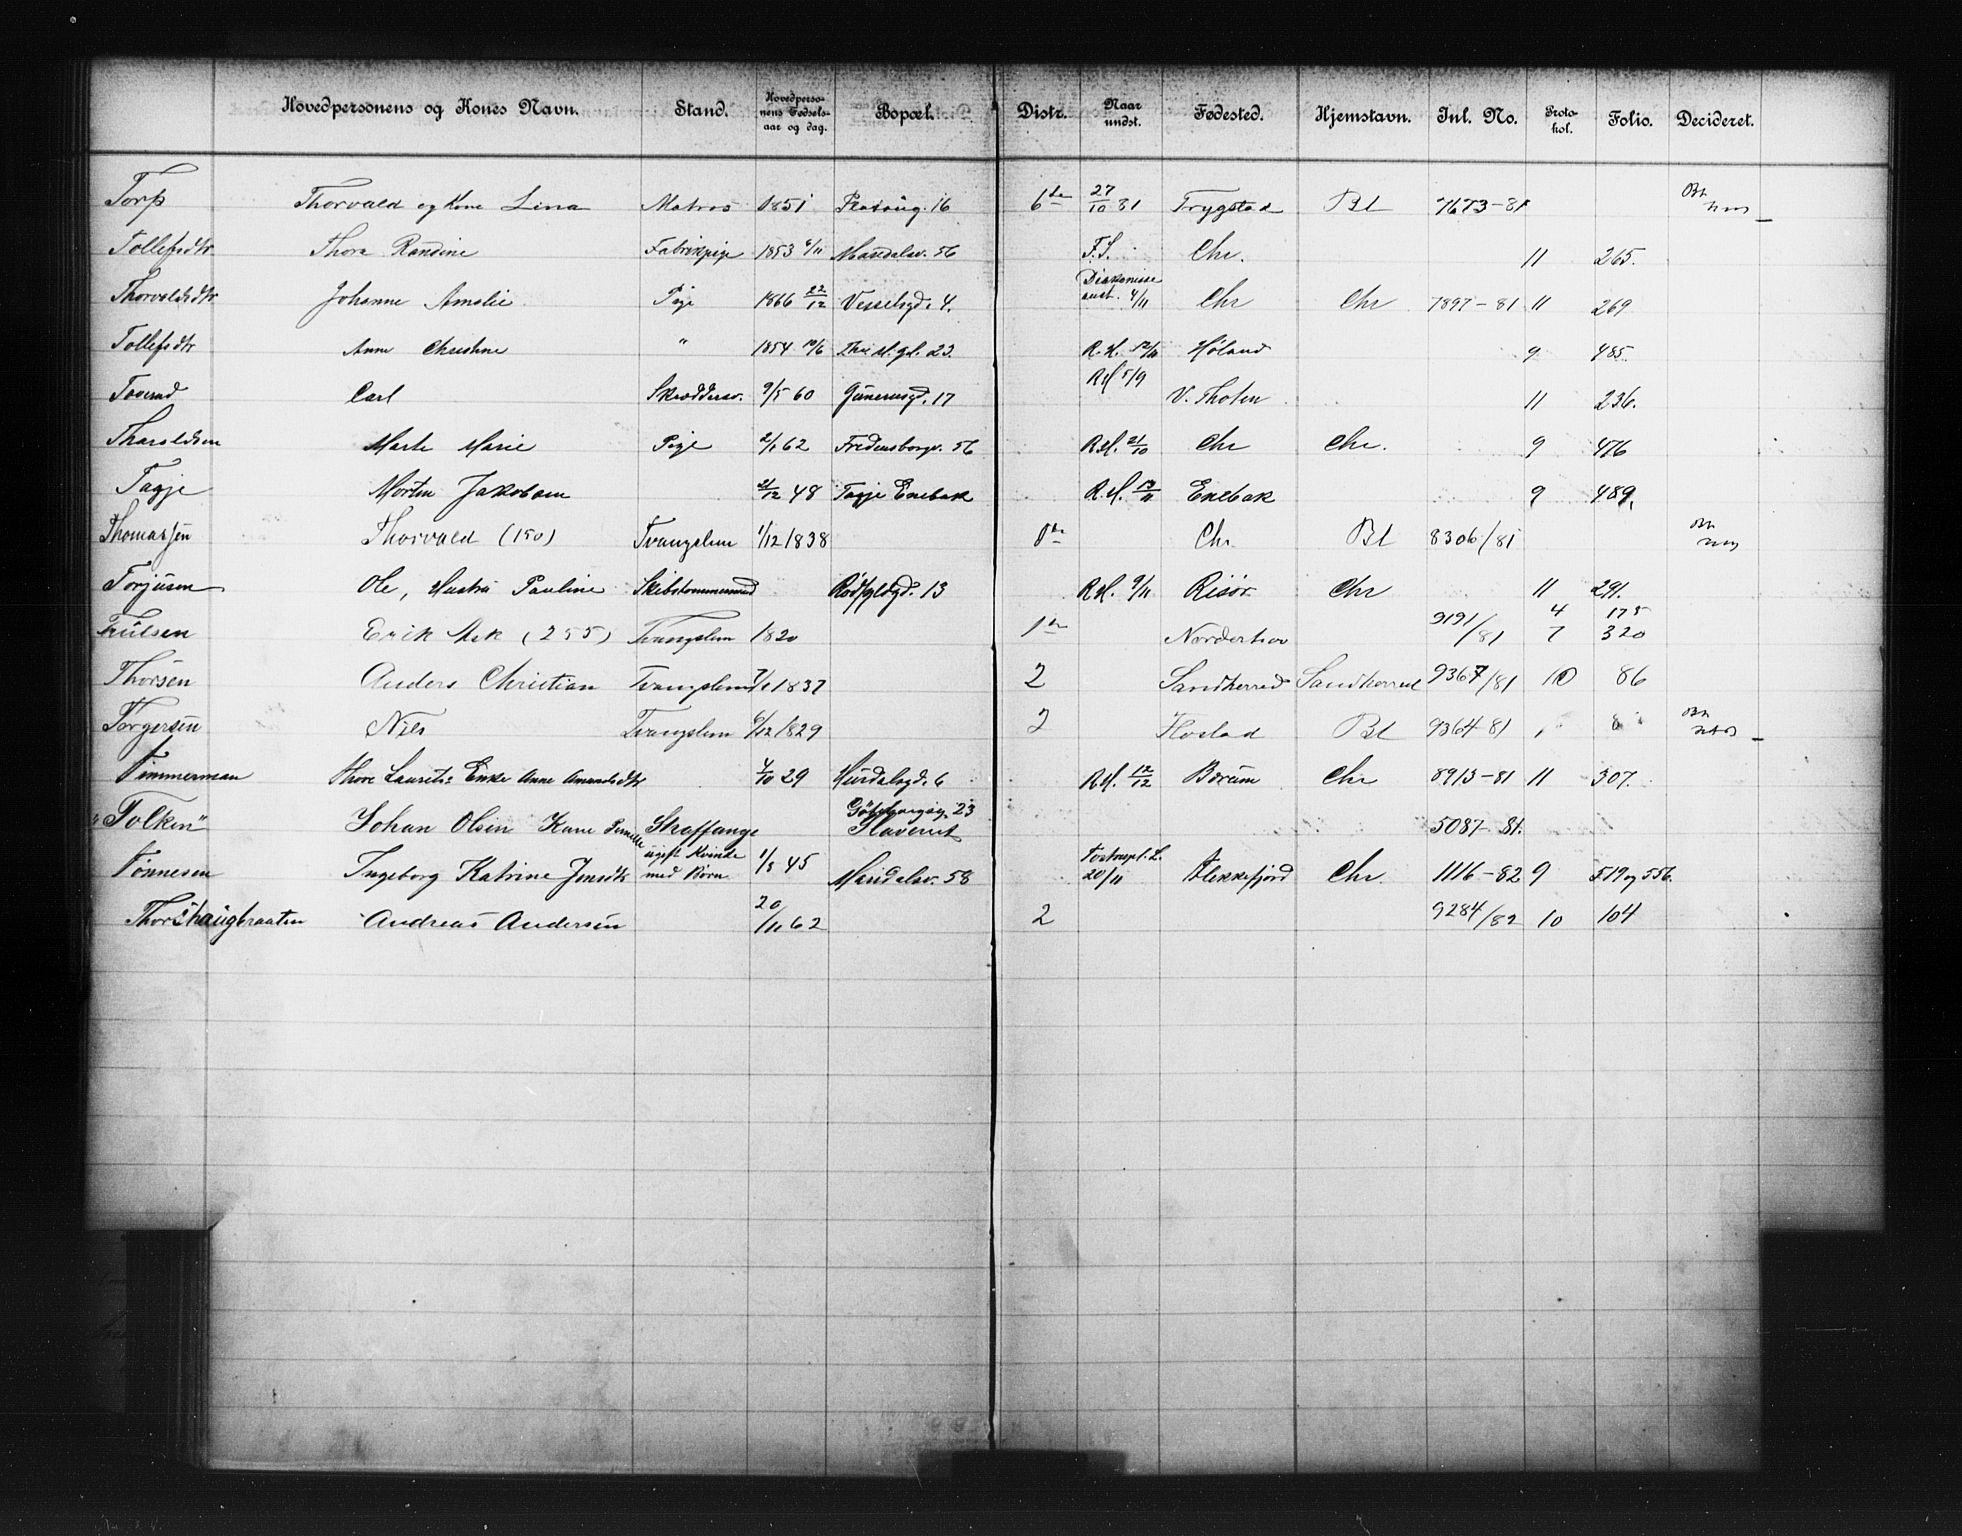 Hovedpersonens og Kones Navn. Stand. Hovedpersonens Fødselsaar og dag. Bopæl. Distr. Naar undst. Fødested. Hjemstavn. Jul. No. Protokol. Folio. Decideret.
Torp Thorvald og Kone Lina Matros 1851 16 6te 27/10 81 Trygstad Bl 7673-81
Tollefsdtr Thora Randine Fabrikpige 1853 6/11 Maridalsv. 56 F.S. Chr. 11 265.
Thorvaldsdtr Johanne Amalie Pige 1866 22/12 Vesselsgd. 4. Diakonisse anst. 4/11 Chr Chr 7897-81 11 269
Tollefsdtr Anne Christine " 1854 10/6 Thu st. gd. 23. R.H. 12/11 Høland 9 485.
Toverud Carl Skrædersv. 9/5 60 Gunerusgd. 17 RH 5/9 V. Thoten 11 236.
Tharaldsen Marte Marie Pige 2/1 62 Fredensborgv. 56 R.H. 21/10 Chr Chr. 9 476
Tagje Morten Jakobsen 21/12 48 Tagje Enebak R.H. 13/11 Enebak 9 489.
Thomassen Thorvald (150) Tvangslem 1/12 1838 1te Chr. Bl 8306/81
Torjusen Ole, Hustru Pauline Skibstømmermd Rødfyldgd. 13 R.H. 9/11 Risør Chr 11 291.
Trulsen Erik Aek (255) Tvangslem 1820 1te Norderhov 9191/81 4 7 175 320
Thorsen Anders Christian Tvangslem 7/1 1837 2 Sandherred Sandherred 9367/81 10 86
Torgersen Nils Tvangslem 6/12 1829 2 Bl 9364-81
Timmerman Thore Laurits Enke Anne Amundsdtr 4/10 29 Hurdalsgd. 6 R.H. 12/12 Bærum Chr 8913-81 11 307.
"Tolken" Johan Olsen Kone Pernille Straffange Gøteborgsg. 23 Slaveriet 5087-81.
Tønnesen Ingeborg Katrine Jensdtr ugift Kvinde med Børn 1/8 45 Maridalsv. 58 20/11 Flekkefjord Chr. 1116-82 9 519 og 556.
Thorshaugbraaten Andreas Andersen 20/11 62 2 9284/82 10 104